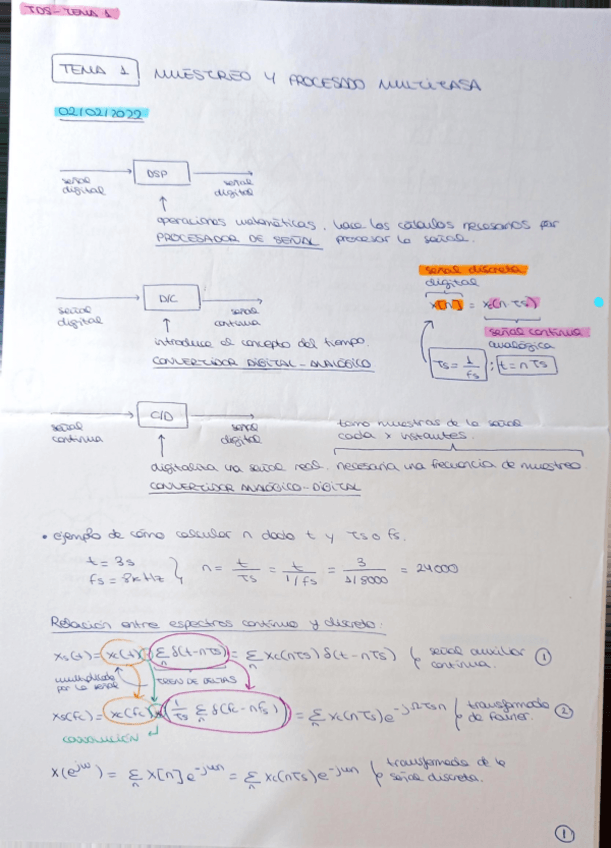 TDS - TEMA 1
TEMA 1 MUESTREO Y PROCESADO MULTITASA
02/02/2022
señal digital → DSP → señal digital
operaciones matemáticas, hace los cálculos necesarios par
PROCESADOR DE SEÑAL procesar la señal.
señal digital → D/C → señal continua
introduce el concepto del tiempo.
CONVERTIDOR DIGITAL - ANALÓGICO
señal discreta
digital
x[n] = xc(n Ts)
señal continua
analógica
Ts = 1/fs ; t = n Ts
señal continua → C/D → señal digital
tomo muestras de la señal
cada x instantes.
digitaliza una señal real. necesaria una frecuencia de muestreo.
CONVERTIDOR ANALÓGICO - DIGITAL
• ejemplo de cómo calcular n dado t y Ts o fs.
t = 3s
fs = 8kHz } n = t/Ts = t/(1/fs) = 3/(1/8000) = 24000
Relación entre espectros continuo y discreto:
xs(t) = xc(t) · Σn δ(t-nTs) = Σn xc(nTs) δ(t-nTs) } señal auxiliar continua. ①
multiplicada por la señal
TREN DE DELTAS
Xs(fc) = Xc(fc) * (1/Ts Σn δ(fc-nfs)) = Σn xc(nTs)e^-jΩTsn } transformada de Fourier. ②
CONVOLUCIÓN
X(e^jω) = Σn x[n]e^-jωn = Σn xc(nTs)e^-jωn } transformada de la señal discreta.
①